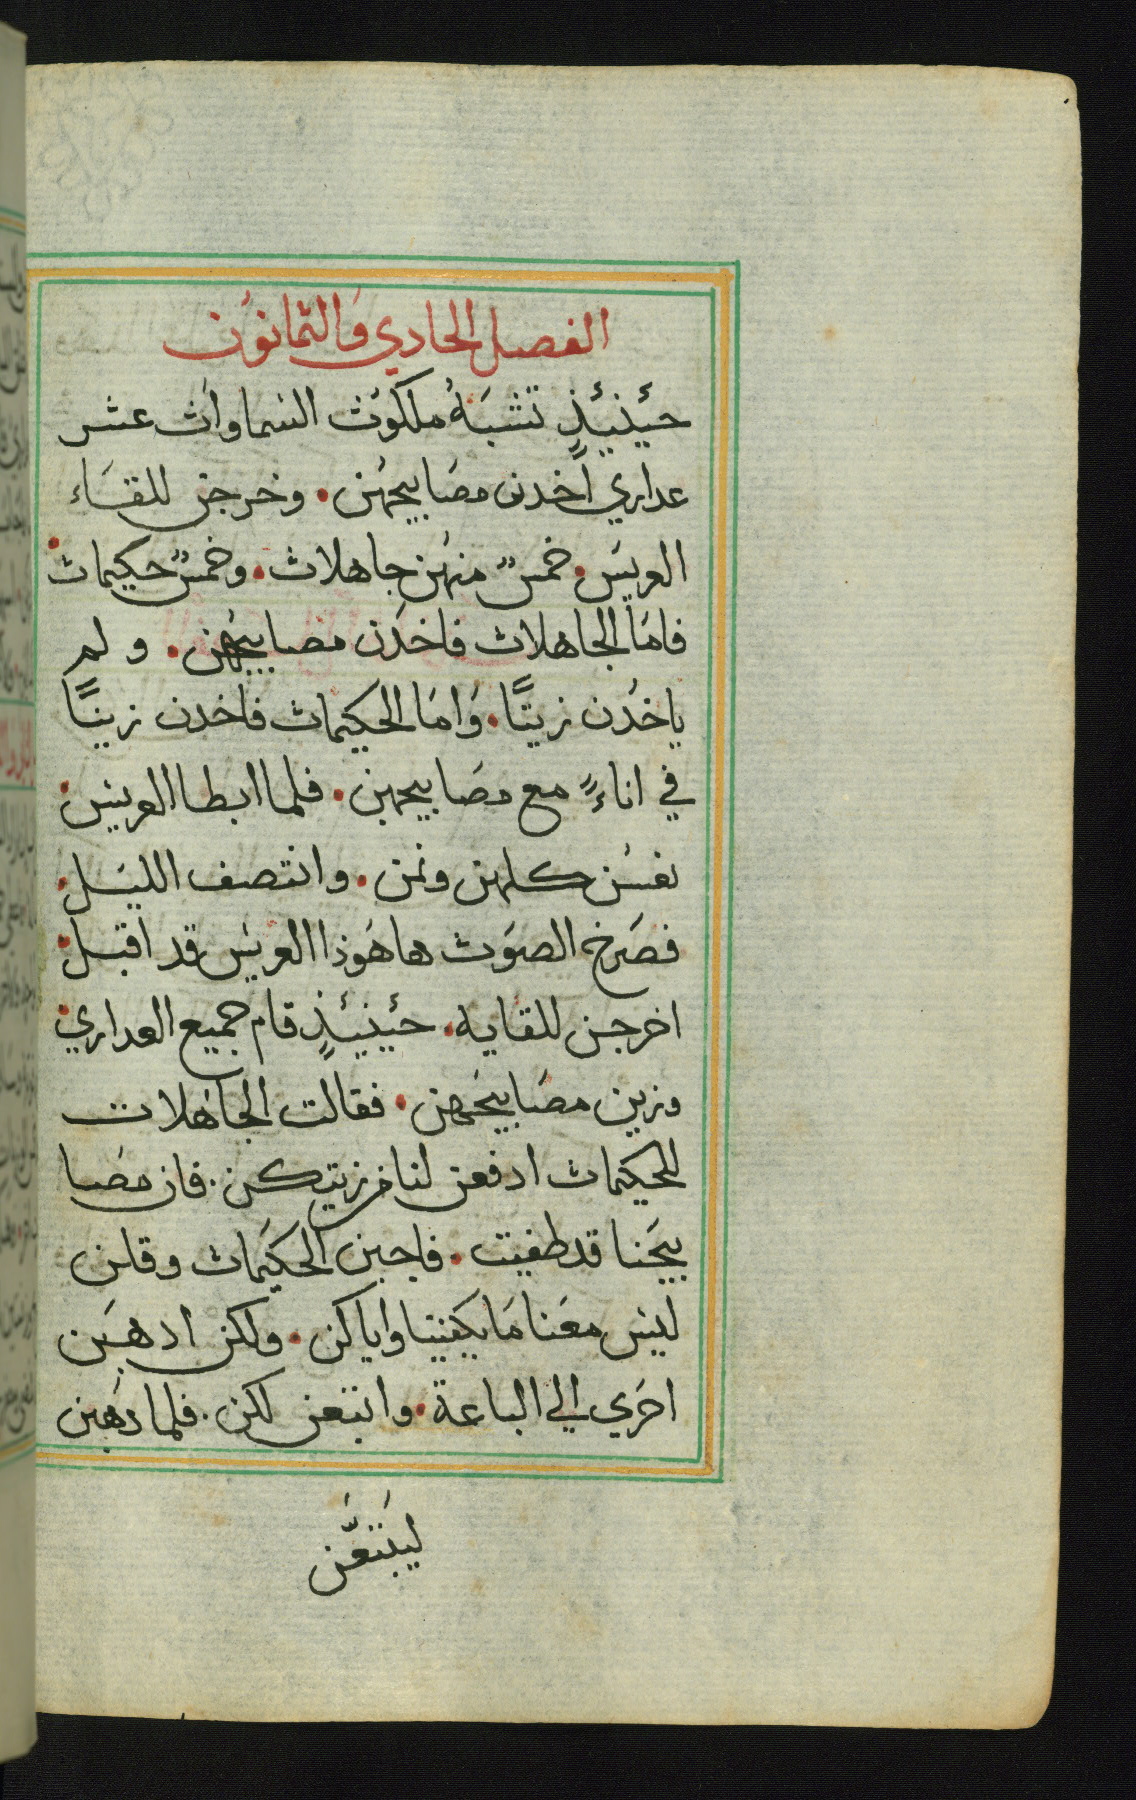 الفصل الحادي والثمانون
حئنئذٍ تشبَهُ ملكوث السماواث عشر
عداري اخدن مصابيحهن. وخرجن للقاء
العريس. خمسٌ منهن جاهلاث. وخمسٌ حكيماث.
فامَا الجاهلاث فاخدن مصابيحهن. ولم
ياخدن زيتًا. وَامَا الحكيماث فاخدن زيتًا
في اناءٍ مع مصابيحهن. فلما ابطا العريس.
نعسن كلهن ونمن. وانتصف الليل.
فصَرخ الصَوث ها هَوذا العريس قد اقبل.
اخرجن للقايه. حئنئذٍ قام جميع العداري.
وزين مصَابيحهن. فقالت الجاهلات
للحكيماث ادفعن لنا من زيتكن. فان مصَا
بيحَنا قد طفيت. فاجبن الحكيَماث وقلن
ليس معَنا مَا يكفينا واياكن. ولكن ادهبَن
احَري الي الباعة. وابتعن لكن. فلما دَهبن
ليَبتَعّن